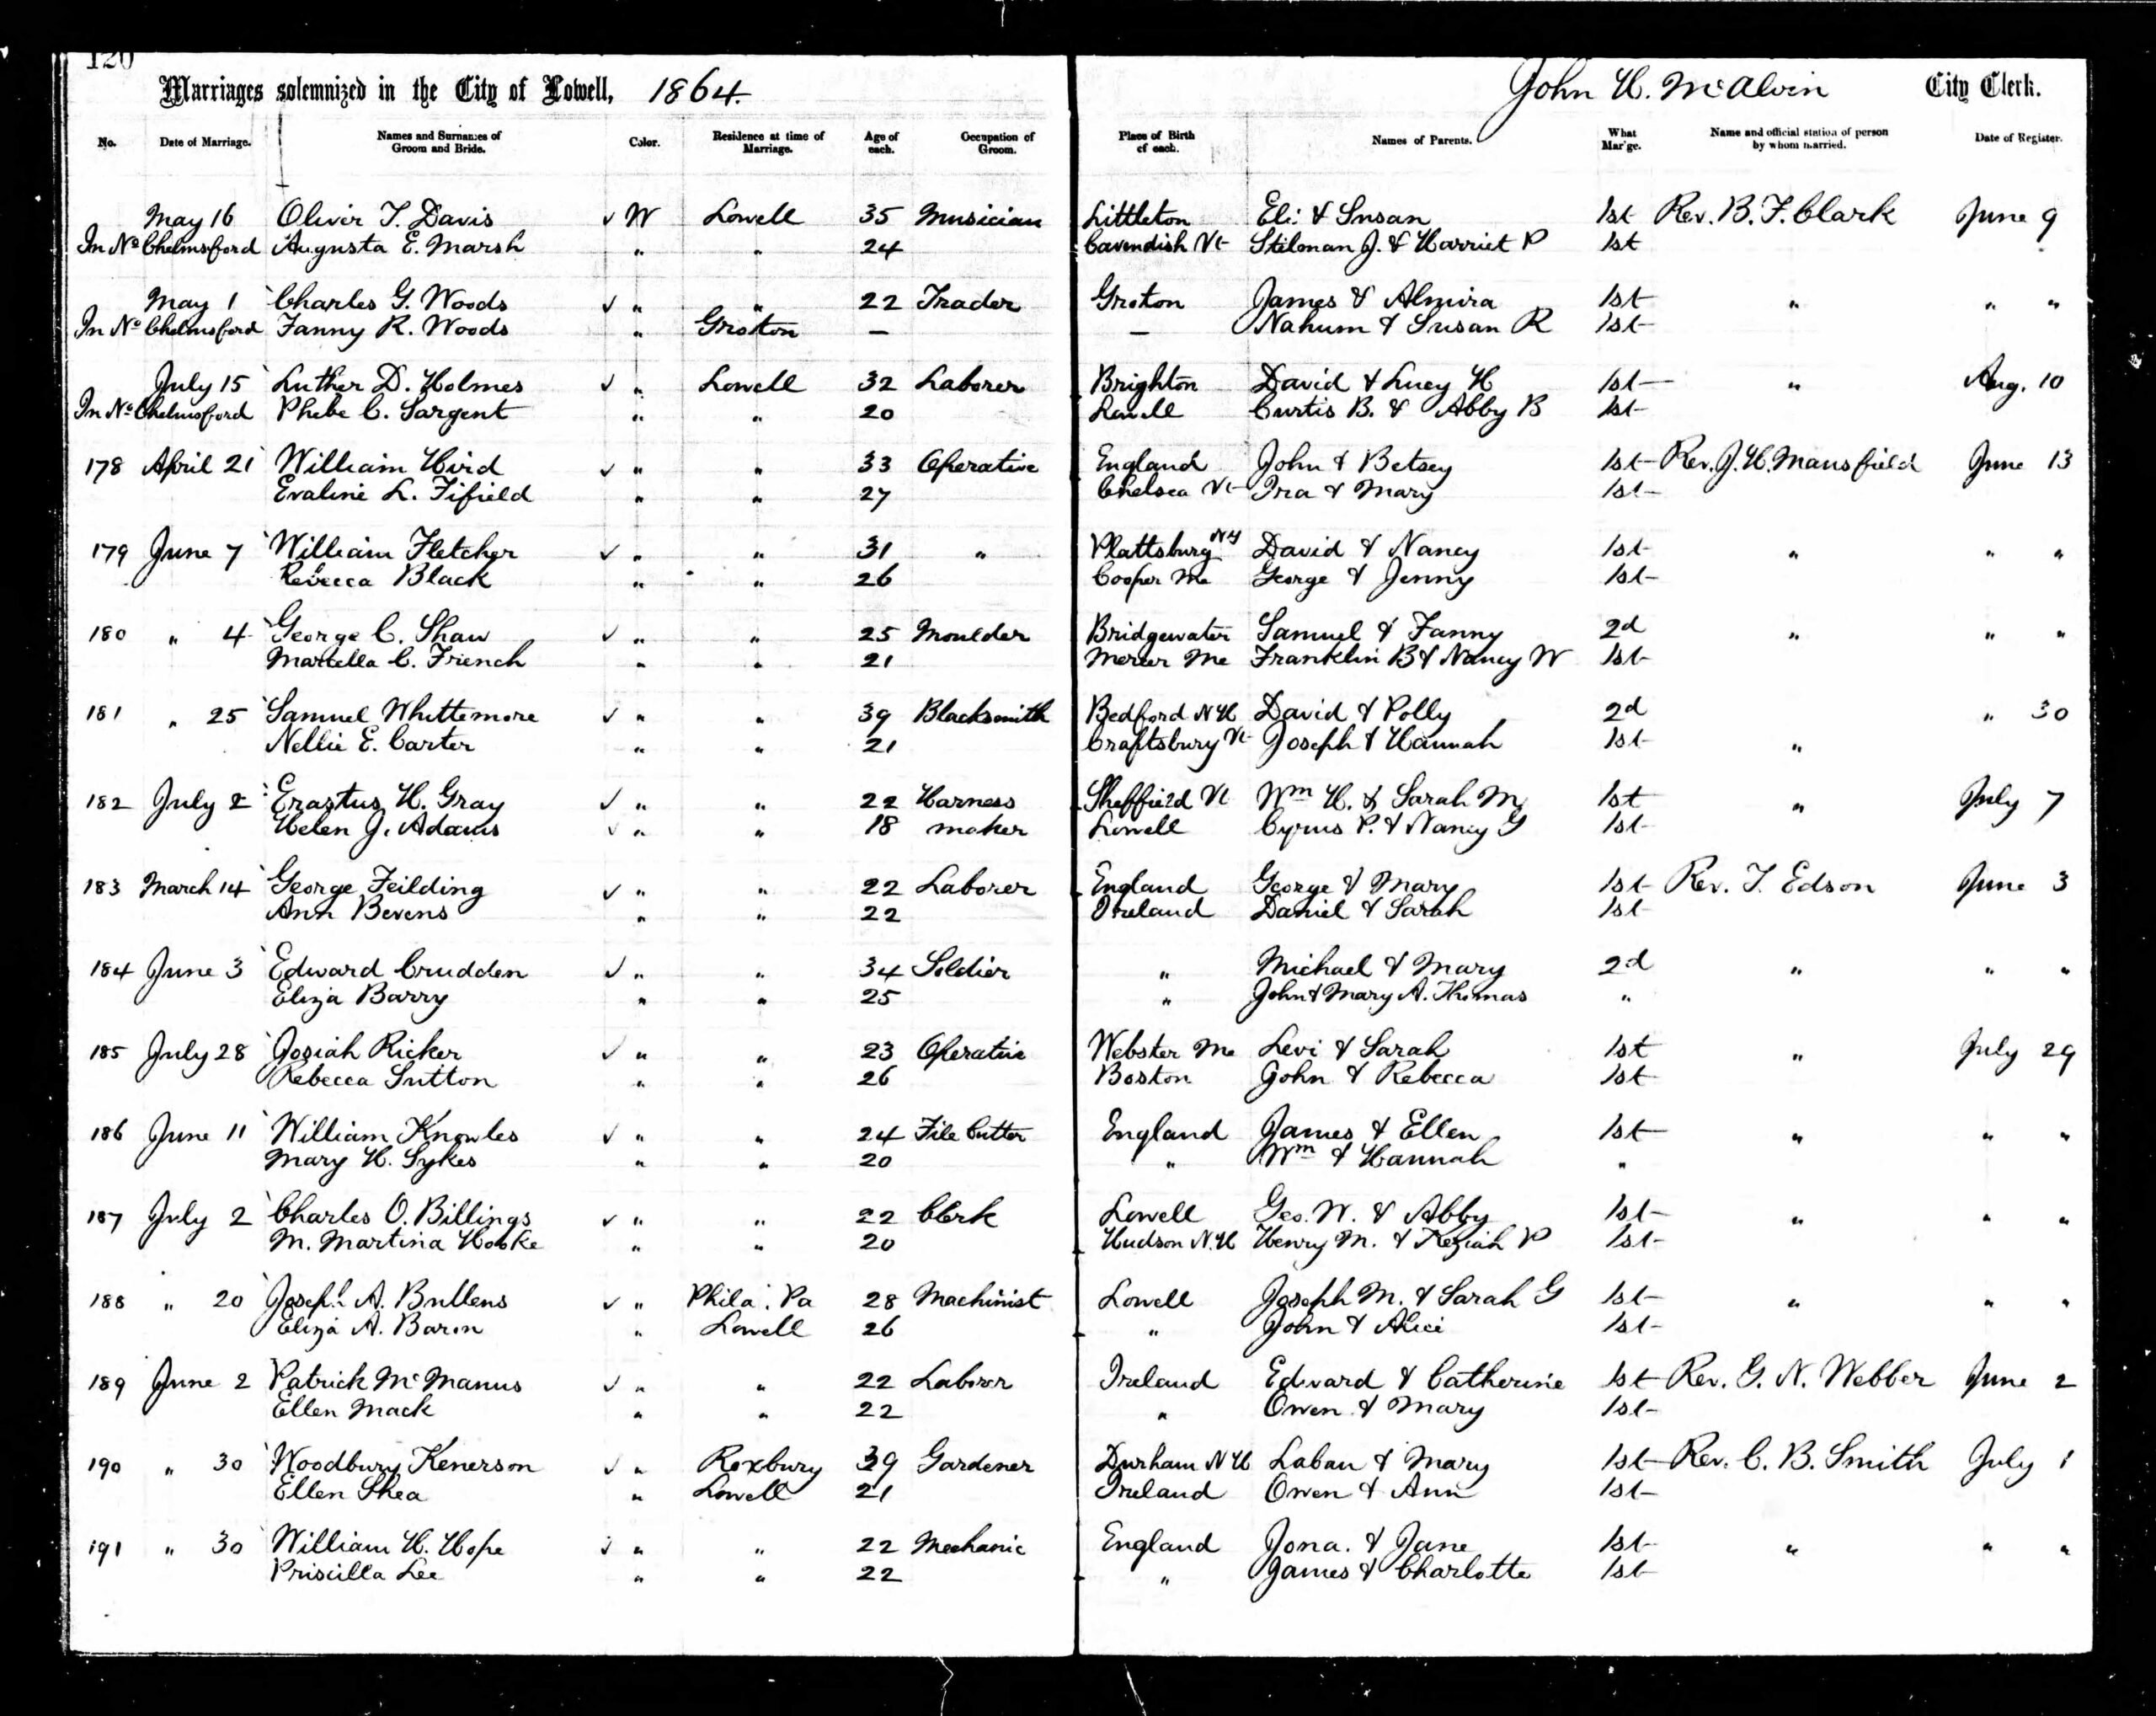 120
Marriages solemnized in the City of Lowell, 1864. John H. McAlvin City Clerk.
No. Date of Marriage. Names and Surnames of Groom and Bride. Color. Residence at time of Marriage. Age of each. Occupation of Groom. Place of Birth of each. Names of Parents. What Mar'ge. Name and official station of person by whom married. Date of Register.
May 16 Oliver T. Davis ✓ W Lowell 35 Musician Littleton Eli & Susan 1st Rev. B. F. Clark June 9
In No Chelmsford Augusta E. Marsh " " 24 Cavendish Vt Stilman J. & Harriet P 1st
May 1 Charles G. Woods ✓ " " 22 Trader Groton James & Almira 1st " " "
In No Chelmsford Fanny R. Woods " Groton — — Nahum & Susan R 1st
July 15 Luther D. Holmes ✓ " Lowell 32 Laborer Brighton David & Lucy H 1st " Aug. 10
In No Chelmsford Phebe C. Sargent " " 20 Lowell Curtis B. & Abby B 1st
178 April 21 William Hird ✓ " " 33 Operative England John & Betsey 1st Rev. J. H. Mansfield June 13
Evaline L. Fifield " " 27 Chelsea Vt Ira & Mary 1st
179 June 7 William Fletcher ✓ " " 31 " Plattsburg NY David & Nancy 1st " " "
Rebecca Black " " 26 Cooper Me George & Jenny 1st
180 " 4 George C. Shaw ✓ " " 25 Moulder Bridgewater Samuel & Fanny 2d " " "
Martella C. French " " 21 Mercer Me Franklin B & Nancy W 1st
181 " 25 Samuel Whittemore ✓ " " 39 Blacksmith Bedford N H David & Polly 2d " 30
Nellie E. Carter " " 21 Craftsbury Vt Joseph & Hannah 1st "
182 July 2 Erastus H. Gray ✓ " " 22 Harness Sheffield Vt Wm H. & Sarah M 1st " July 7
Helen J. Adams ✓ " " 18 maker Lowell Cyrus P. & Nancy G 1st
183 March 14 George Feilding ✓ " " 22 Laborer England George & Mary 1st Rev. T. Edson June 3
Ann Bevens " " 22 Ireland Daniel & Sarah 1st
184 June 3 Edward Crudden ✓ " " 34 Soldier " Michael & Mary 2d " " "
Eliza Barry " " 25 " John & Mary A. Thomas "
185 July 28 Josiah Ricker ✓ " " 23 Operative Webster Me Levi & Sarah 1st " July 29
Rebecca Sutton " " 26 Boston John & Rebecca 1st
186 June 11 William Knowles ✓ " " 24 File Cutter England James & Ellen 1st " " "
Mary H. Sykes " " 20 " Wm & Hannah "
187 July 2 Charles O. Billings ✓ " " 22 Clerk Lowell Geo. W. & Abby 1st " " "
M. Martina Hooke " " 20 Hudson N. H Henry M. & Keziah P 1st
188 " 20 Joseph A. Bullens ✓ " Phila. Pa 28 Machinist Lowell Joseph M. & Sarah G 1st " " "
Eliza A. Baron " Lowell 26 " John & Alice 1st
189 June 2 Patrick McManus ✓ " " 22 Laborer Ireland Edward & Catherine 1st Rev. G. N. Webber June 2
Ellen Mack " " 22 " Owen & Mary 1st
190 " 30 Woodbury Kenerson ✓ " Roxbury 39 Gardener Durham N H Laban & Mary 1st Rev. C. B. Smith July 1
Ellen Shea " Lowell 21 Ireland Owen & Ann 1st
191 " 30 William H. Hope ✓ " " 22 Mechanic England Jona. & Jane 1st " " "
Priscilla Lee " " 22 " James & Charlotte 1st